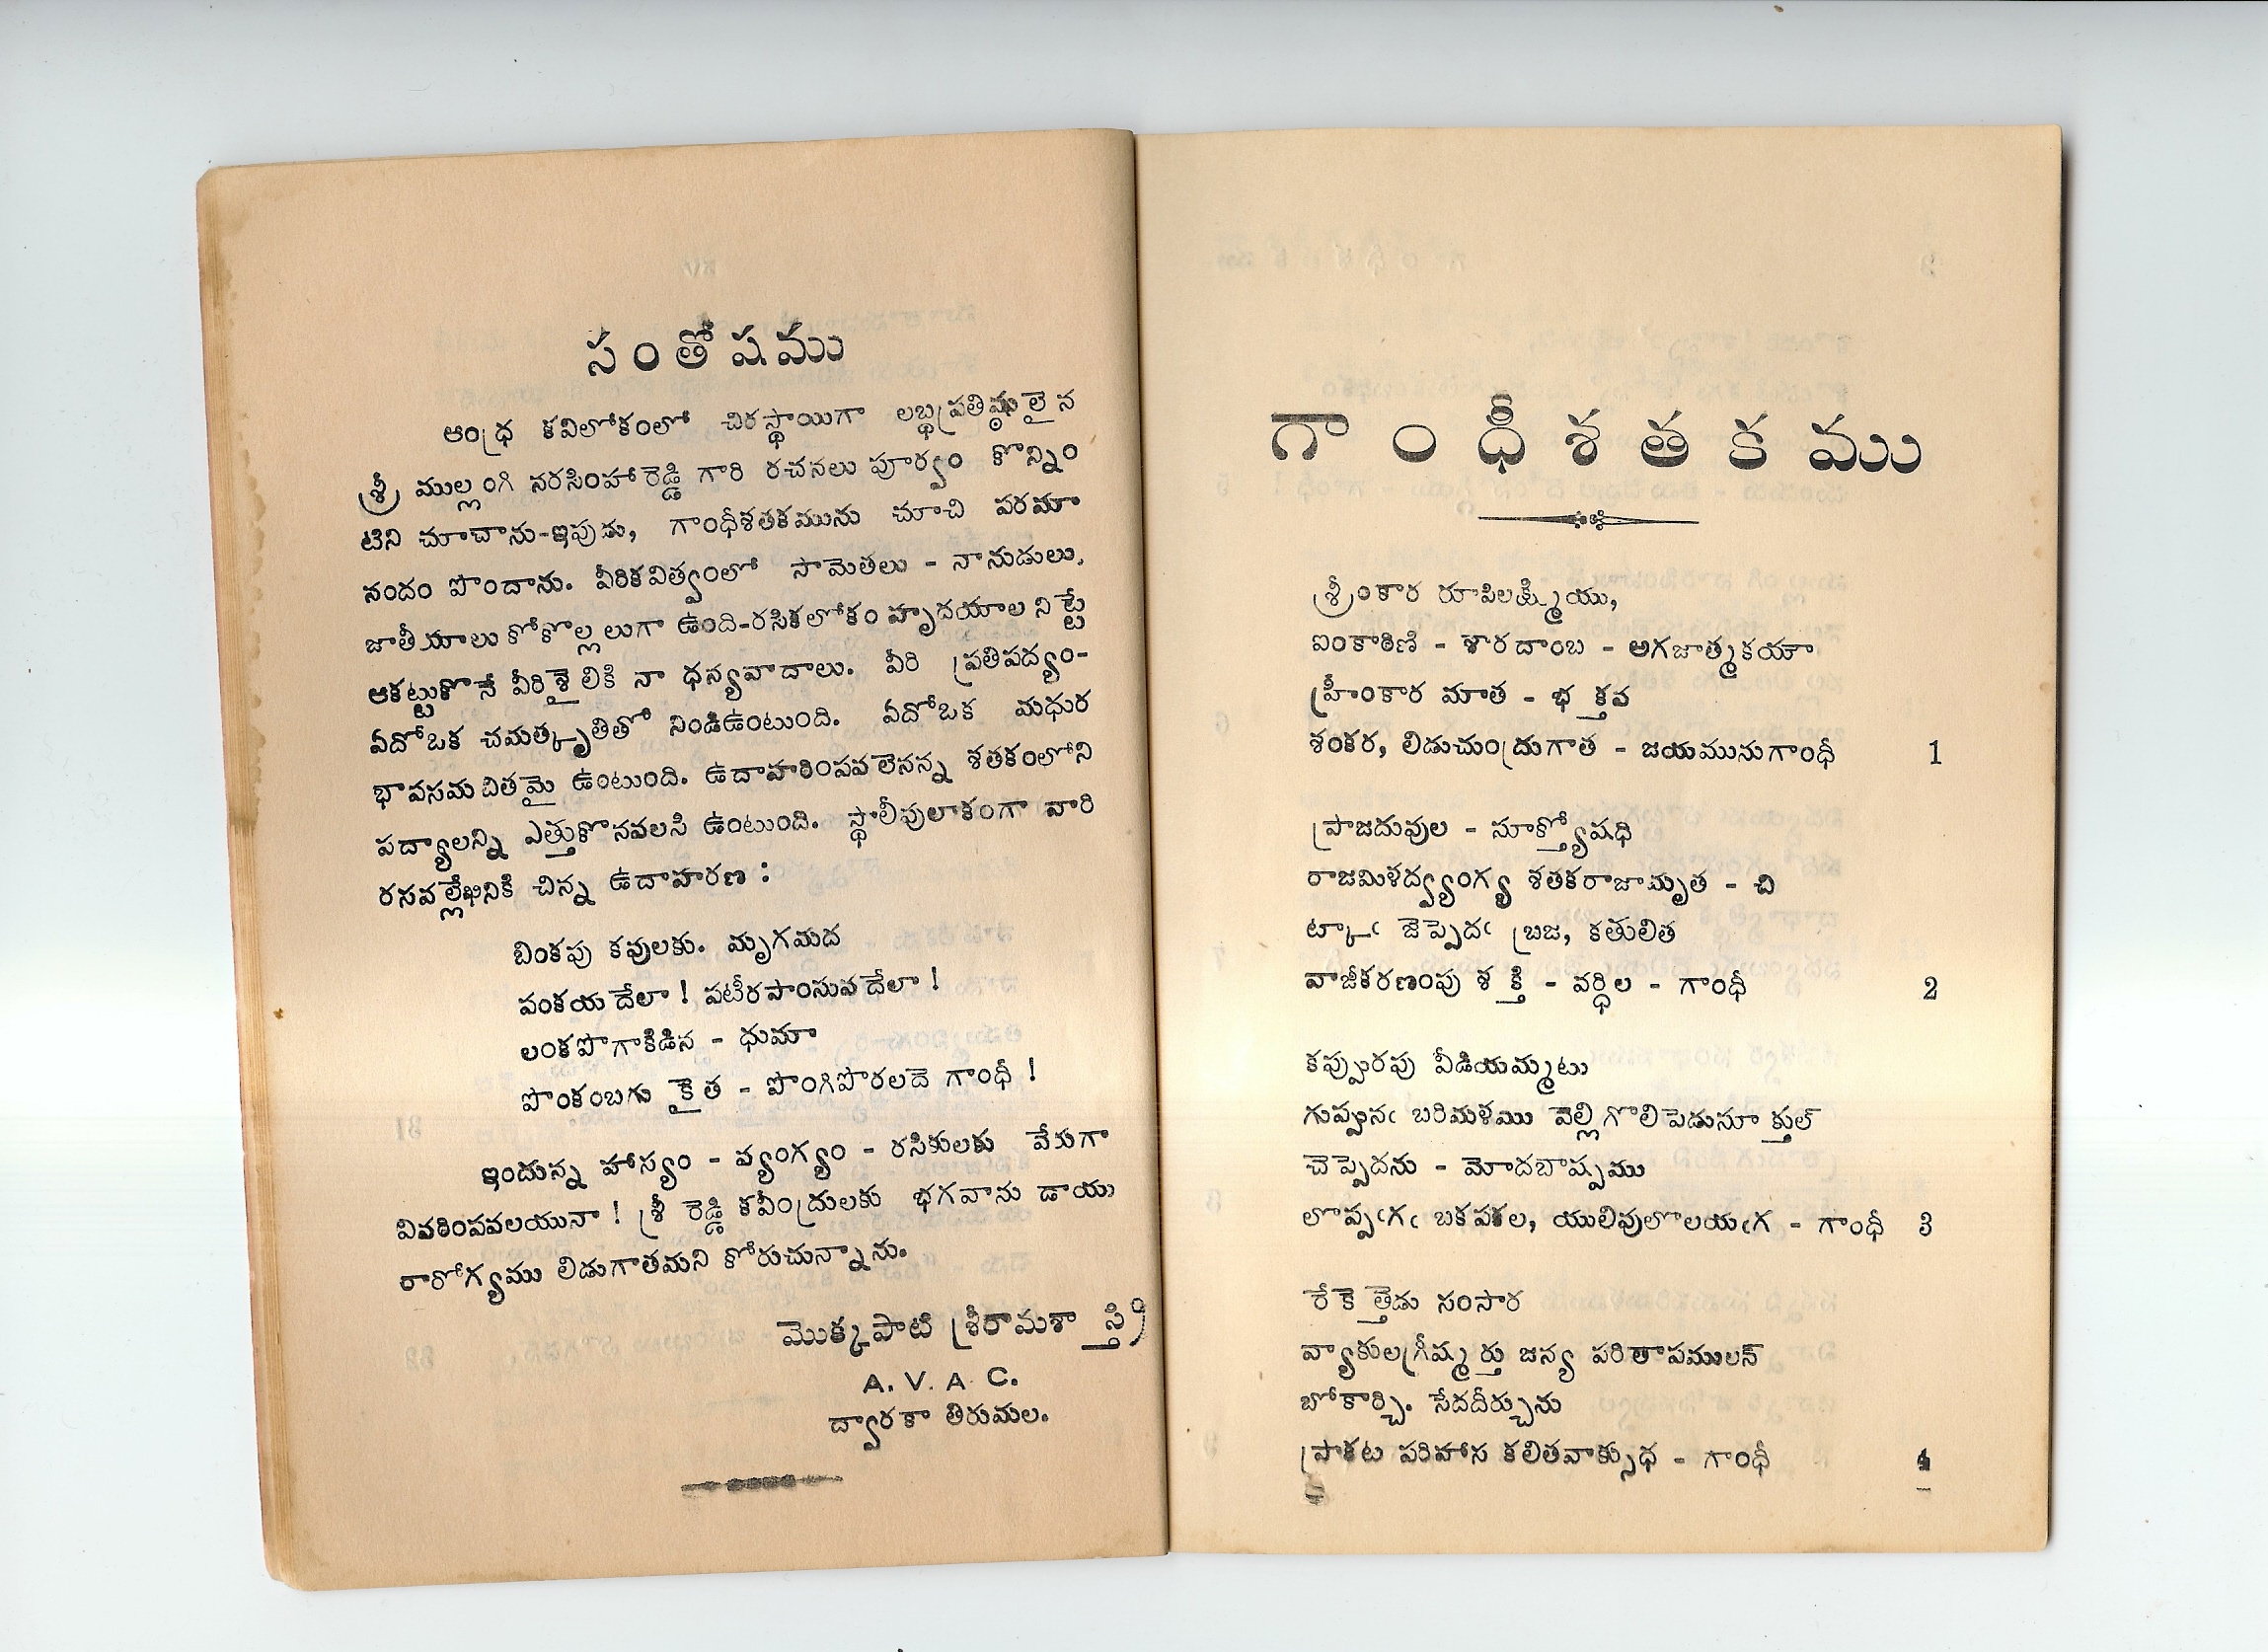 సంతోషము
ఆంధ్ర కవిలోకంలో చిరస్థాయిగా లబ్ధప్రతిష్ఠులైన
శ్రీ ముల్లంగి నరసింహారెడ్డి గారి రచనలు పూర్వం కొన్నిం
టిని చూచాను-ఇపుడు, గాంధీశతకమును చూచి పరమా
నందం పొందాను. వీరికవిత్వంలో సామెతలు - నానుడులు,
జాతీయాలు కోకొల్లలుగా ఉంది-రసికలోకం హృదయాల నిట్టే
ఆకట్టుకొనే వీరిశైలికి నా ధన్యవాదాలు. వీరి ప్రతిపద్యం-
ఏదోఒక చమత్కృతితో నిండిఉంటుంది. ఏదోఒక మధుర
భావసమచితమై ఉంటుంది. ఉదాహరింపవలెనన్న శతకంలోని
పద్యాలన్ని ఎత్తుకొనవలసి ఉంటుంది. స్థాలీపులాకంగా వారి
రసవల్లేఖినికి చిన్న ఉదాహరణ :
బింకపు కవులకు. మృగమద
పంకయదేలా ! పటీరపాంసువదేలా !
లంకపొగాకిడిన - ధుమా
పొంకంబగు కైత - పొంగిపొరలదె గాంధీ !
ఇందున్న హాస్యం - వ్యంగ్యం - రసికులకు వేరుగా
వివరింపవలయునా ! శ్రీ రెడ్డి కవీంద్రులకు భగవాను డాయు
రారోగ్యము లిడుగాతమని కోరుచున్నాను.
మొక్కపాటి శ్రీరామశాస్త్రి
A. V. A. C.
ద్వారకా తిరుమల.
గాంధీశతకము
శ్రీంకార రూపిలక్ష్మియు,
ఐంకారిణి - శారదాంబ - అగజాత్మకయా
హ్రీంకార మాత - భక్తవ
శంకర, లిడుచుంద్రుగాత - జయమునుగాంధీ 1
ప్రాజదువుల - సూక్త్యోషధి
రాజమిళద్వ్యంగ్య శతకరాజామృత - చి
ట్కాఁ జెప్పెదఁ బ్రజ, కతులిత
వాజీకరణంపు శక్తి - వర్ధిల - గాంధీ 2
కప్పురపు వీడియమ్మటు
గుప్పునఁ బరిమళము వెల్లిగొలిపెడుసూక్తుల్
చెప్పెదను - మోదబాష్పము
లొప్పఁగఁ బకపకల, యులివులొలయఁగ - గాంధీ 3
రేకెత్తెడు సంసార
వ్యాకులగ్రీష్మర్తు జన్య పరితాపములన్
బోకార్చి. సేదదీర్చును
ప్రాకట పరిహాస కలితవాక్సుధ - గాంధీ 4